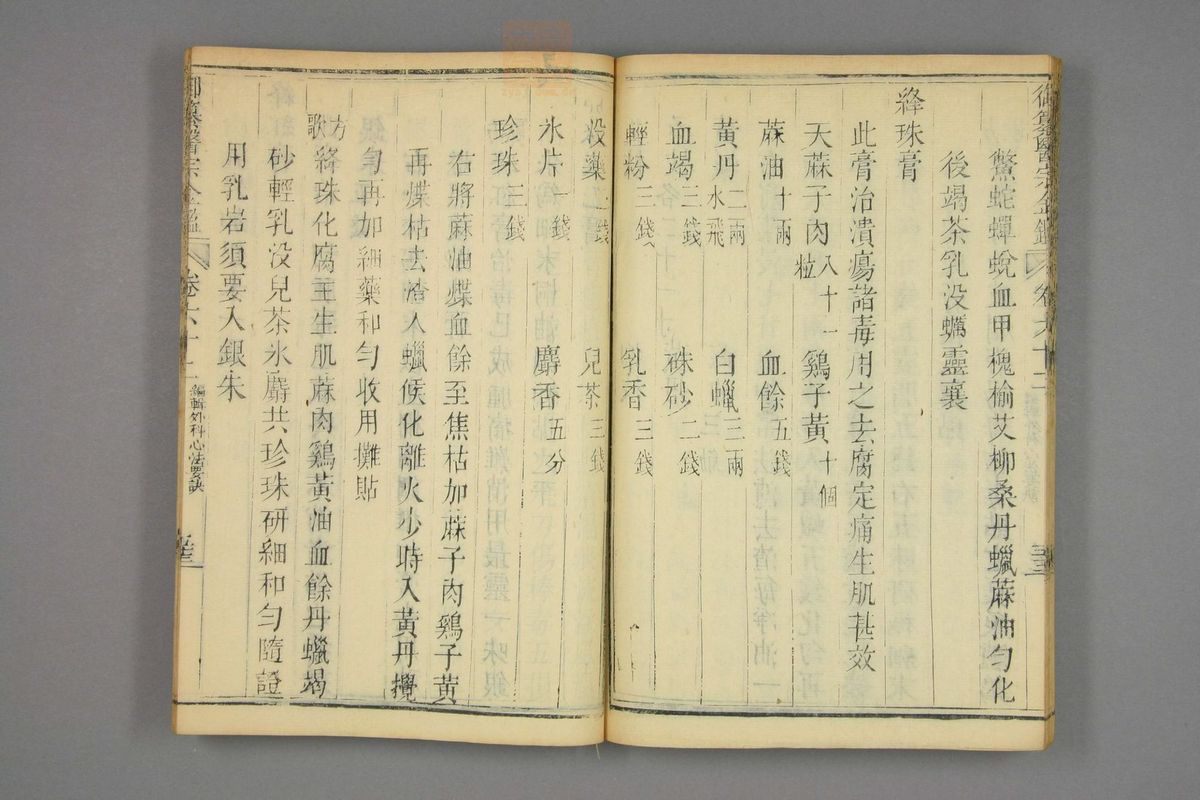 御纂醫宗金鑑 卷六十二
鱉蛇蟬蛻血甲槐榆艾柳桑丹蠟蔴油勻化
後竭茶乳没蠣靈襄
絳珠膏
此膏治潰瘍諸毒用之去腐定痛生肌甚效
天蔴子肉八十一粒 鷄子黃十個
蔴油十兩 血餘五錢
黃丹二兩水飛 白蠟三兩
血竭三錢 硃砂二錢
輕粉三錢 乳香三錢
没藥三錢 兒茶三錢
氷片一錢 麝香五分
珍珠三錢
右將蔴油煠血餘至焦枯加蔴子肉鷄子黃
再煠枯去渣入蠟候化離火少時入黃丹攪
勻再加細藥和勻收用攤貼
方歌 絳珠化腐主生肌蔴肉鷄黃油血餘丹蠟竭
砂輕乳没兒茶氷麝共珍珠研細和勻隨證
用乳岩須要入銀朱
御纂醫宗金鑑 卷六十二 編輯外科心法要訣